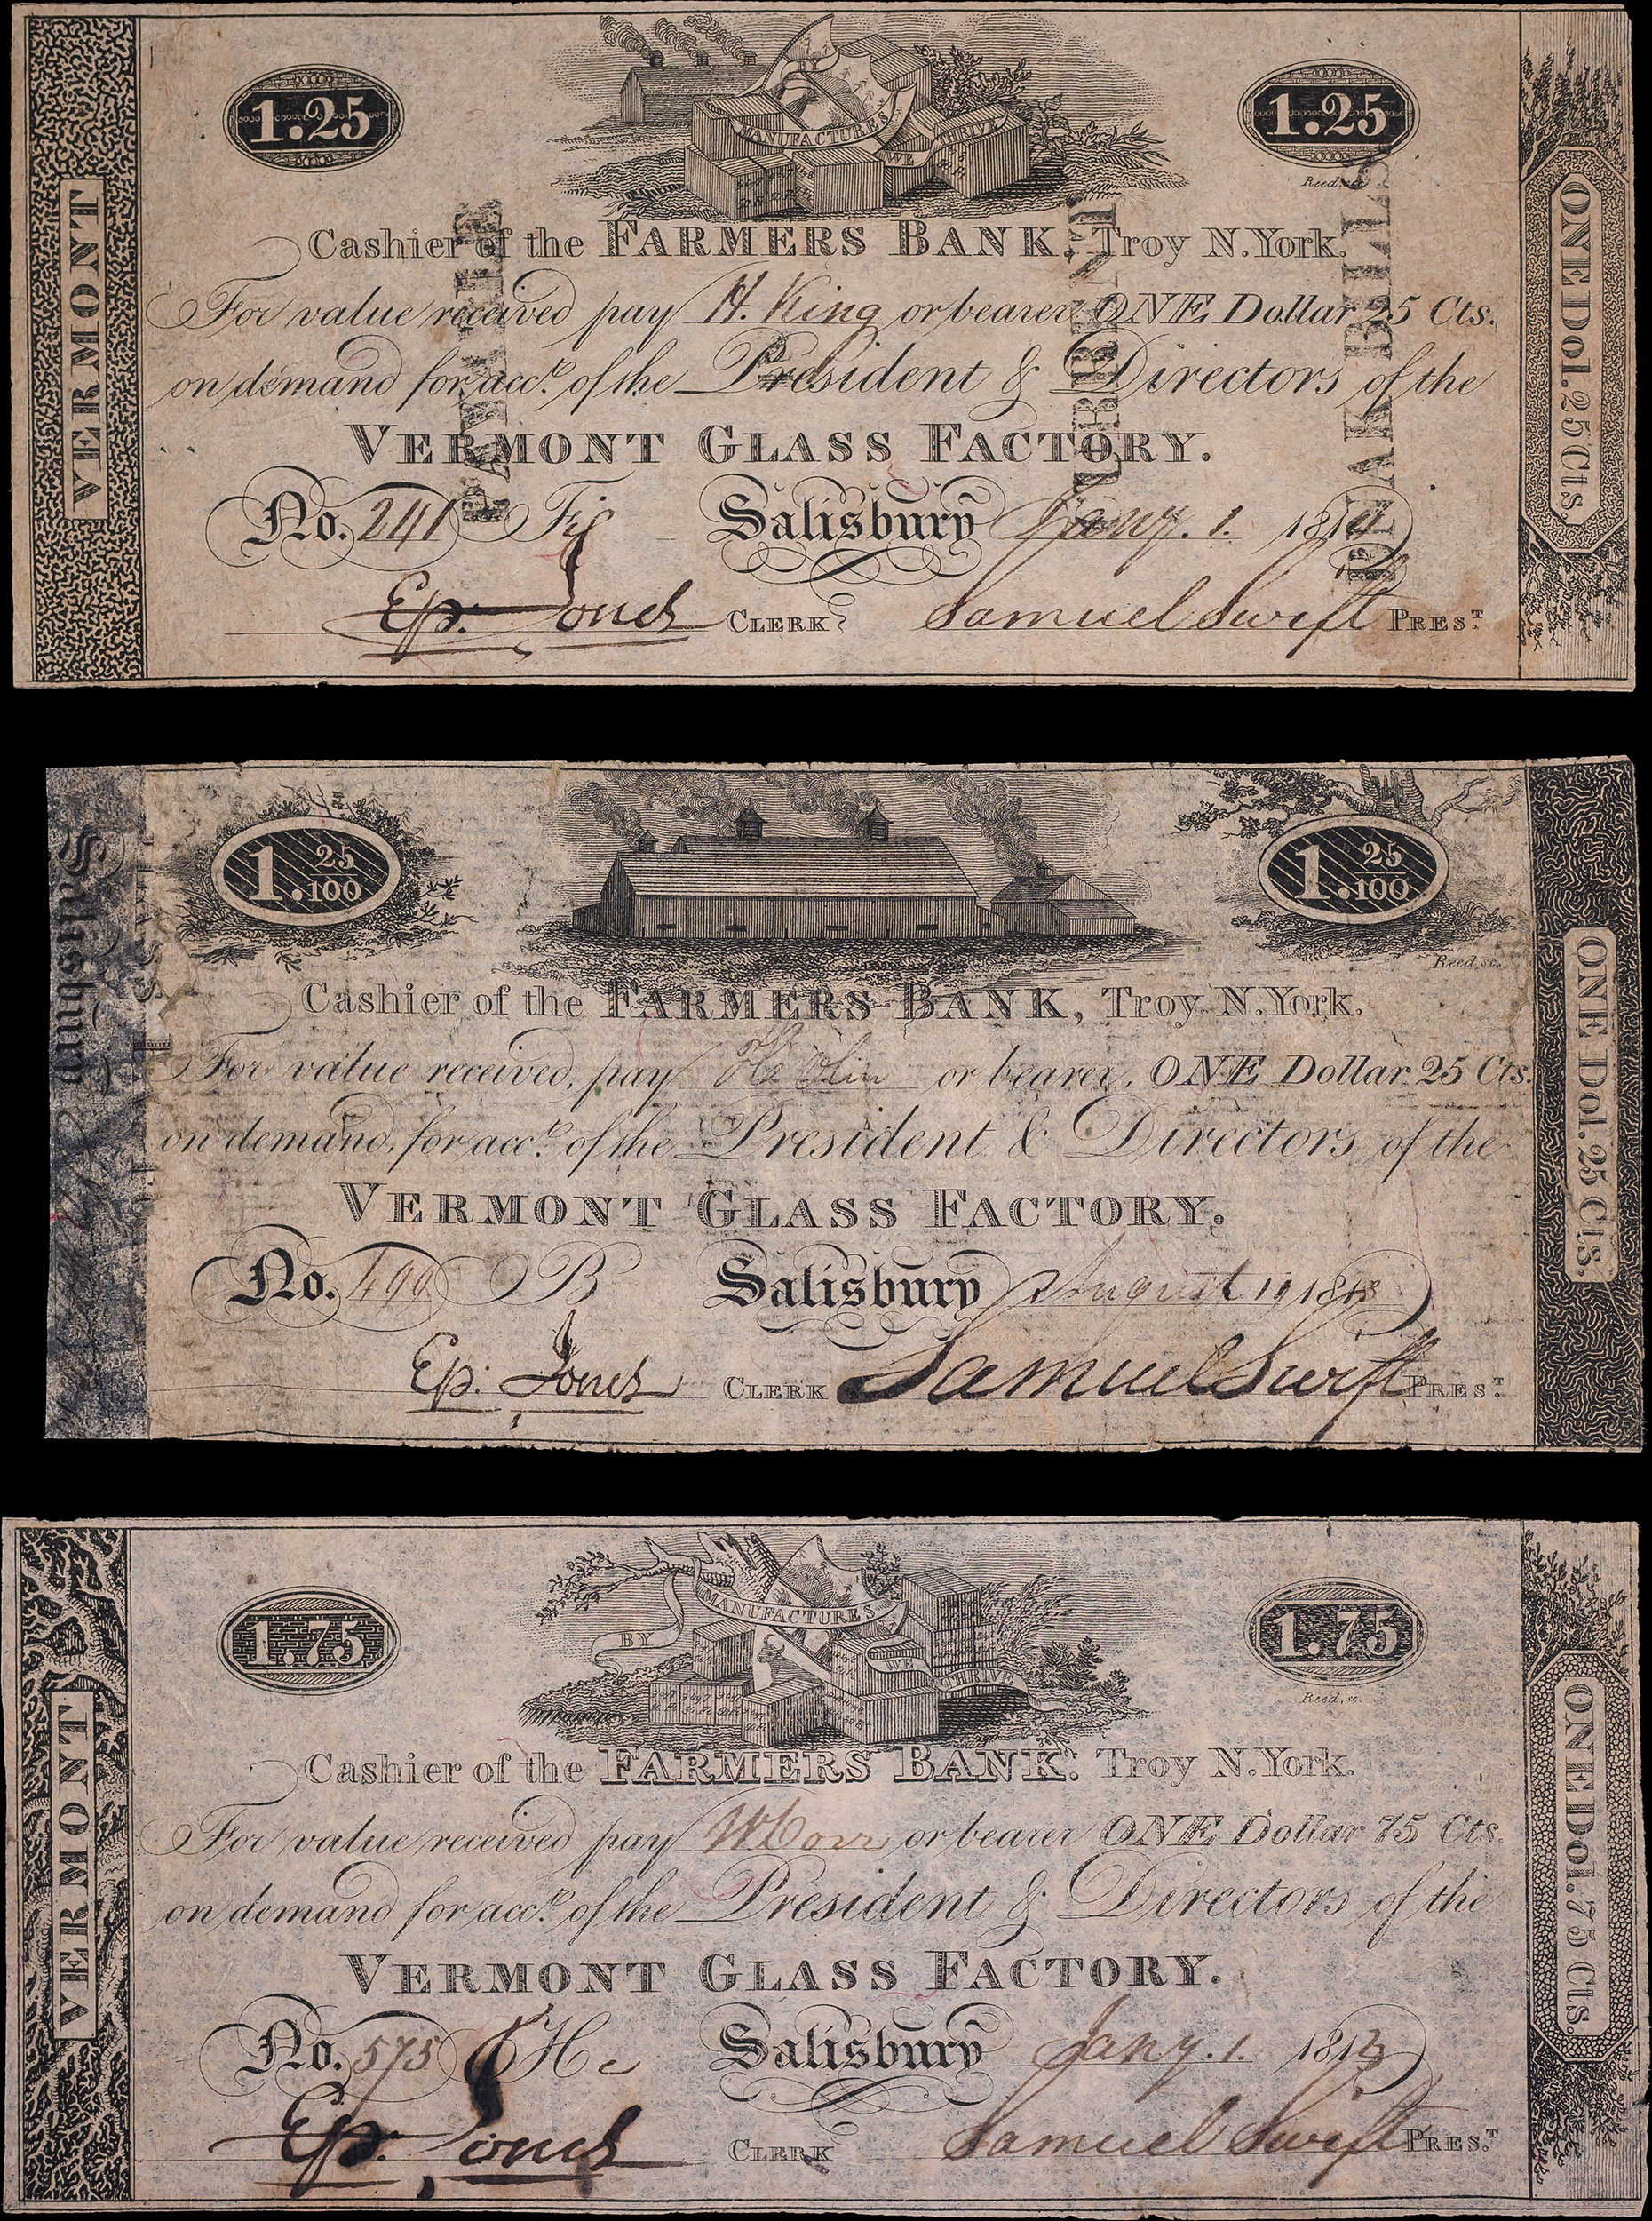 VERMONT
1.25
BY MANUFACTURES WE THRIVE
1.25
Reed. sc.
Cashier of the FARMERS BANK. Troy N. York.
For value received pay H. King or bearer ONE Dollar 25 Cts.
on demand for acct. of the President & Directors of the
VERMONT GLASS FACTORY.
No. 241 Salisbury Jany. 1. 1814
Ep. Jones CLERK Samuel Swift PREST.
ONE Dol. 25 Cts.
Salisbury
1. 25/100
1. 25/100
Reed. sc.
Cashier of the FARMERS BANK, Troy N. York.
For value received, pay or bearer, ONE Dollar 25 Cts.
on demand, for acct. of the President & Directors of the
VERMONT GLASS FACTORY.
No. 499 B Salisbury August 19 1813
Ep. Jones CLERK Samuel Swift PREST.
ONE Dol. 25 Cts.
VERMONT
1.75
BY MANUFACTURES WE THRIVE
1.75
Reed, sc.
Cashier of the FARMERS BANK. Troy N. York.
For value received pay or bearer ONE Dollar 75 Cts.
on demand for acct. of the President & Directors of the
VERMONT GLASS FACTORY.
No. 575 Salisbury Jany. 1. 1813
Ep. Jones CLERK Samuel Swift PREST.
ONE Dol. 75 Cts.